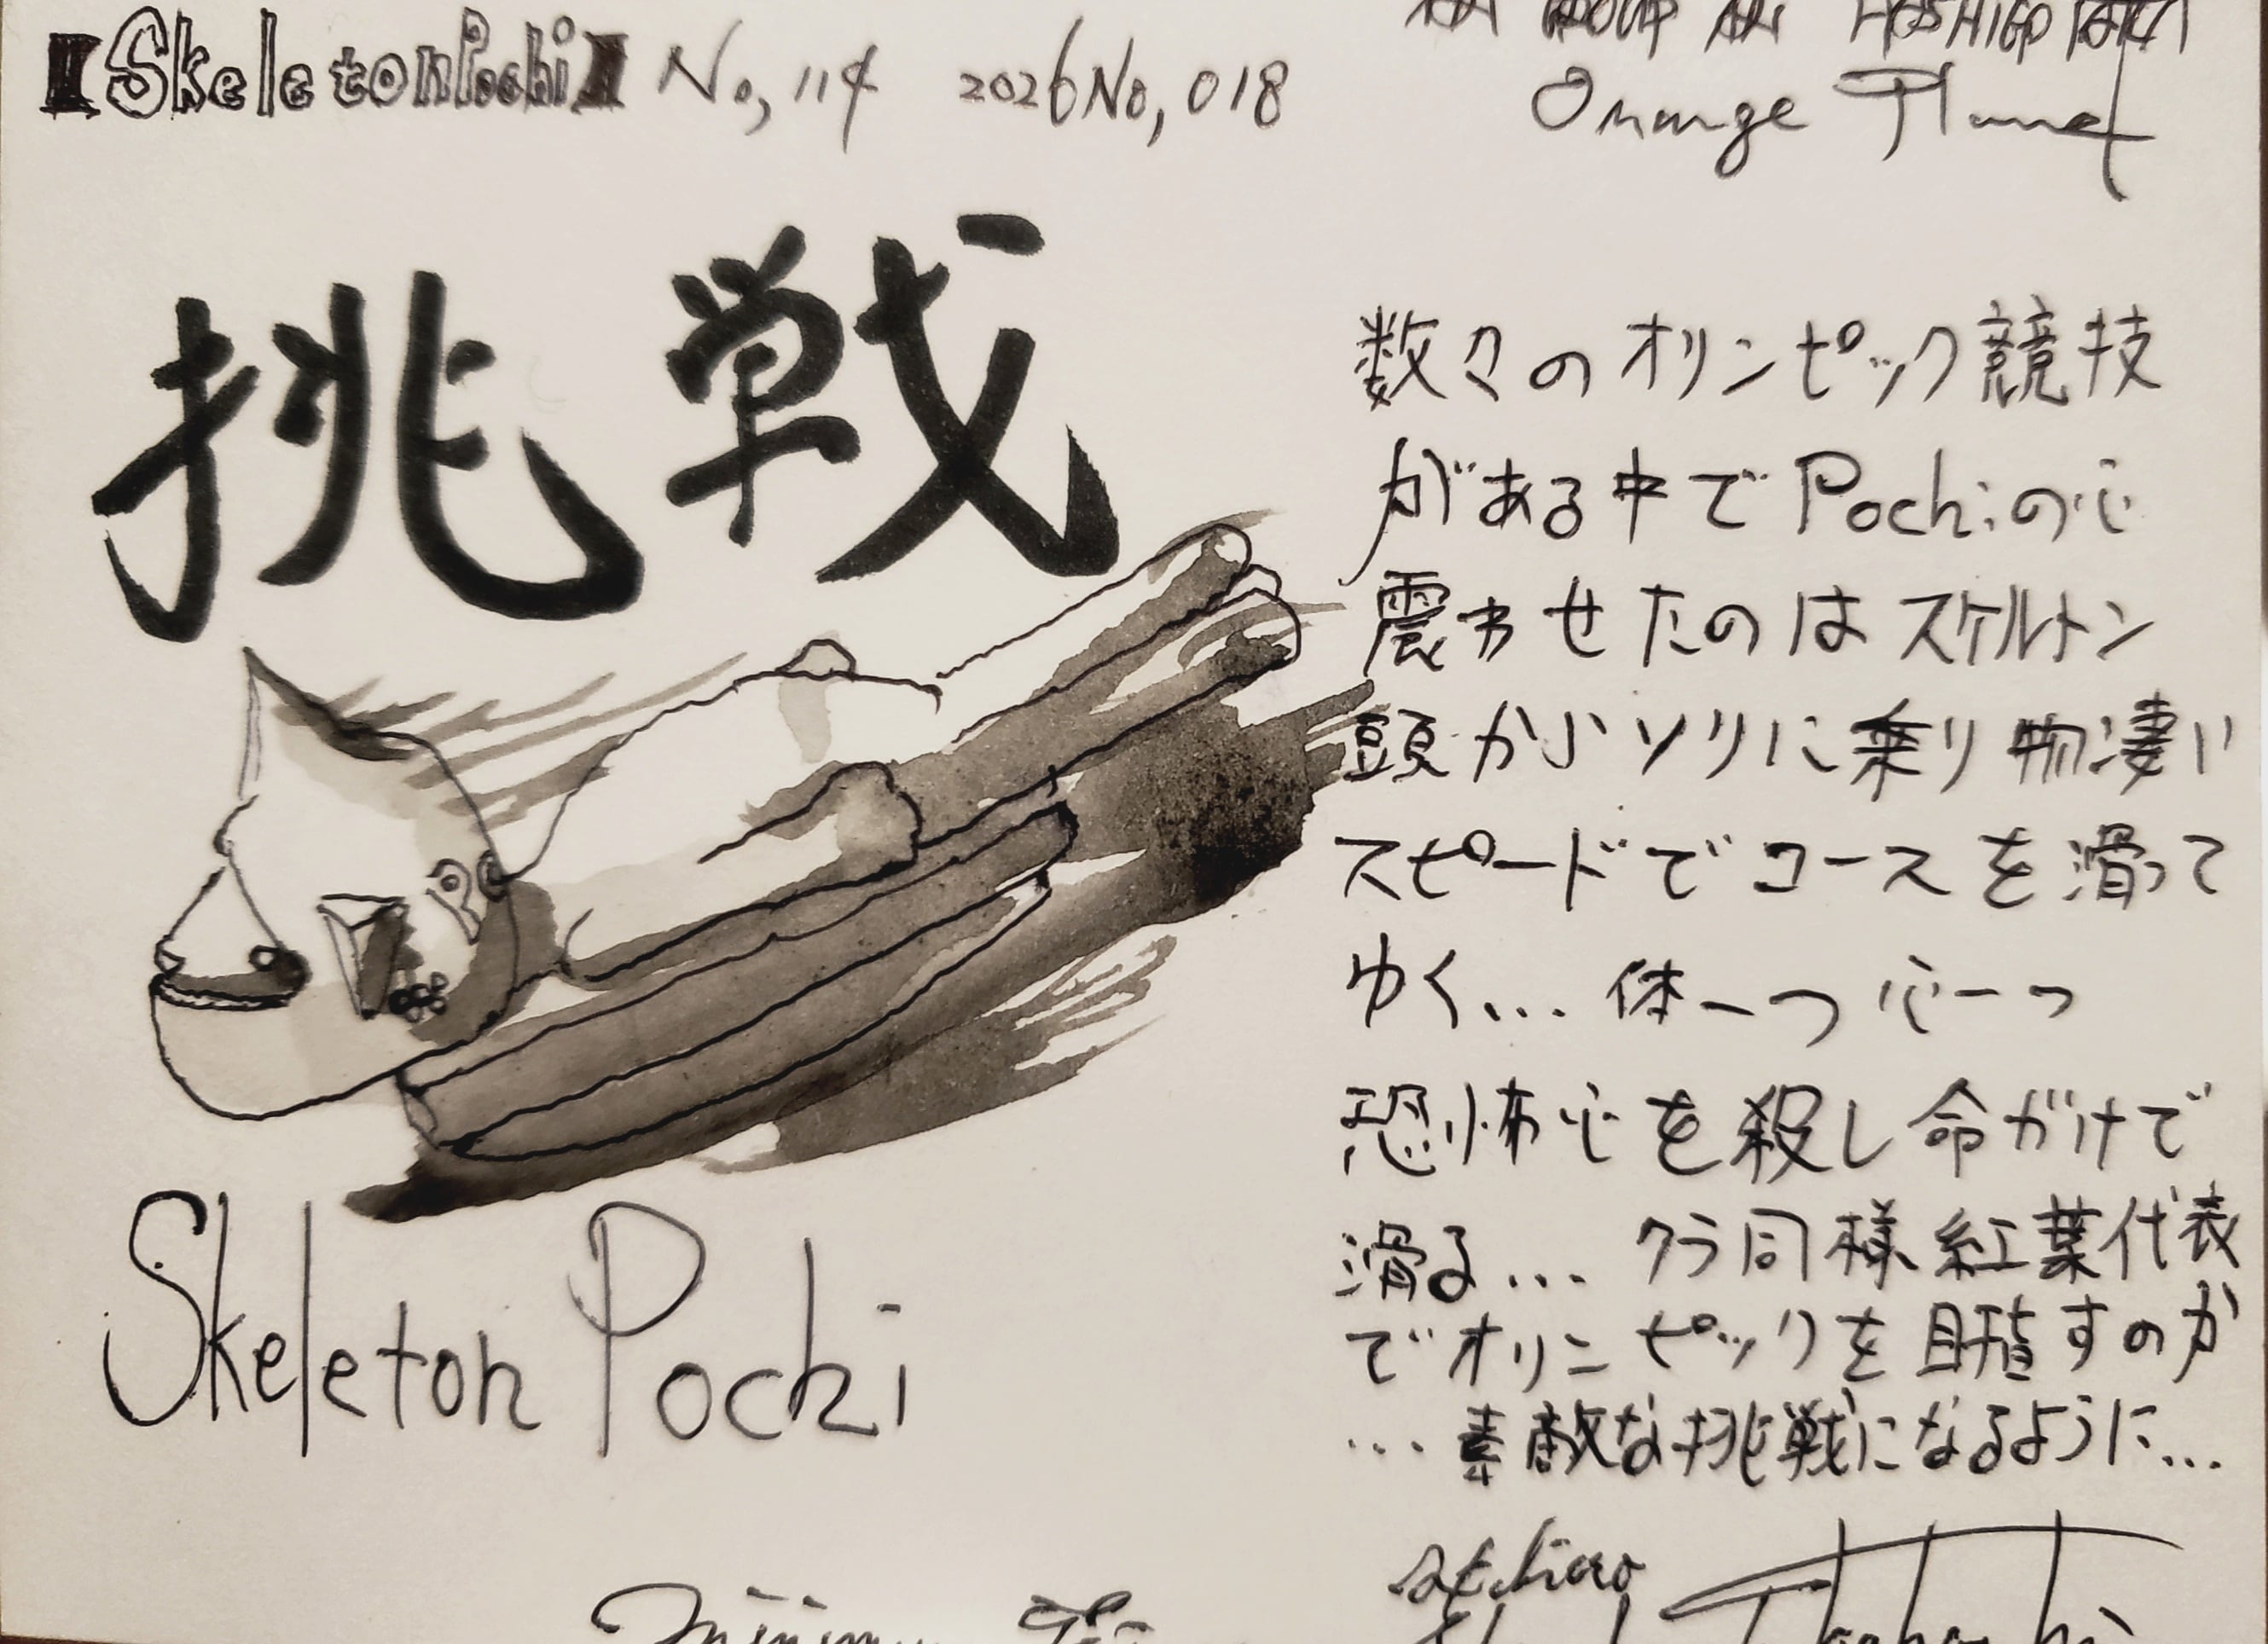 【SkeletonPochi】 No,114 2026No,018
Orange Planet
挑戦
数々のオリンピック競技
がある中でPochiの心
震わせたのはスケルトン
頭からソリに乗り物凄い
スピードでコースを滑って
ゆく... 体一つ心一つ
恐怖心を殺し命がけで
滑る... クラ同様紅葉代表
でオリンピックを目指すのか
... 素敵な挑戦になるように...
Skeleton Pochi